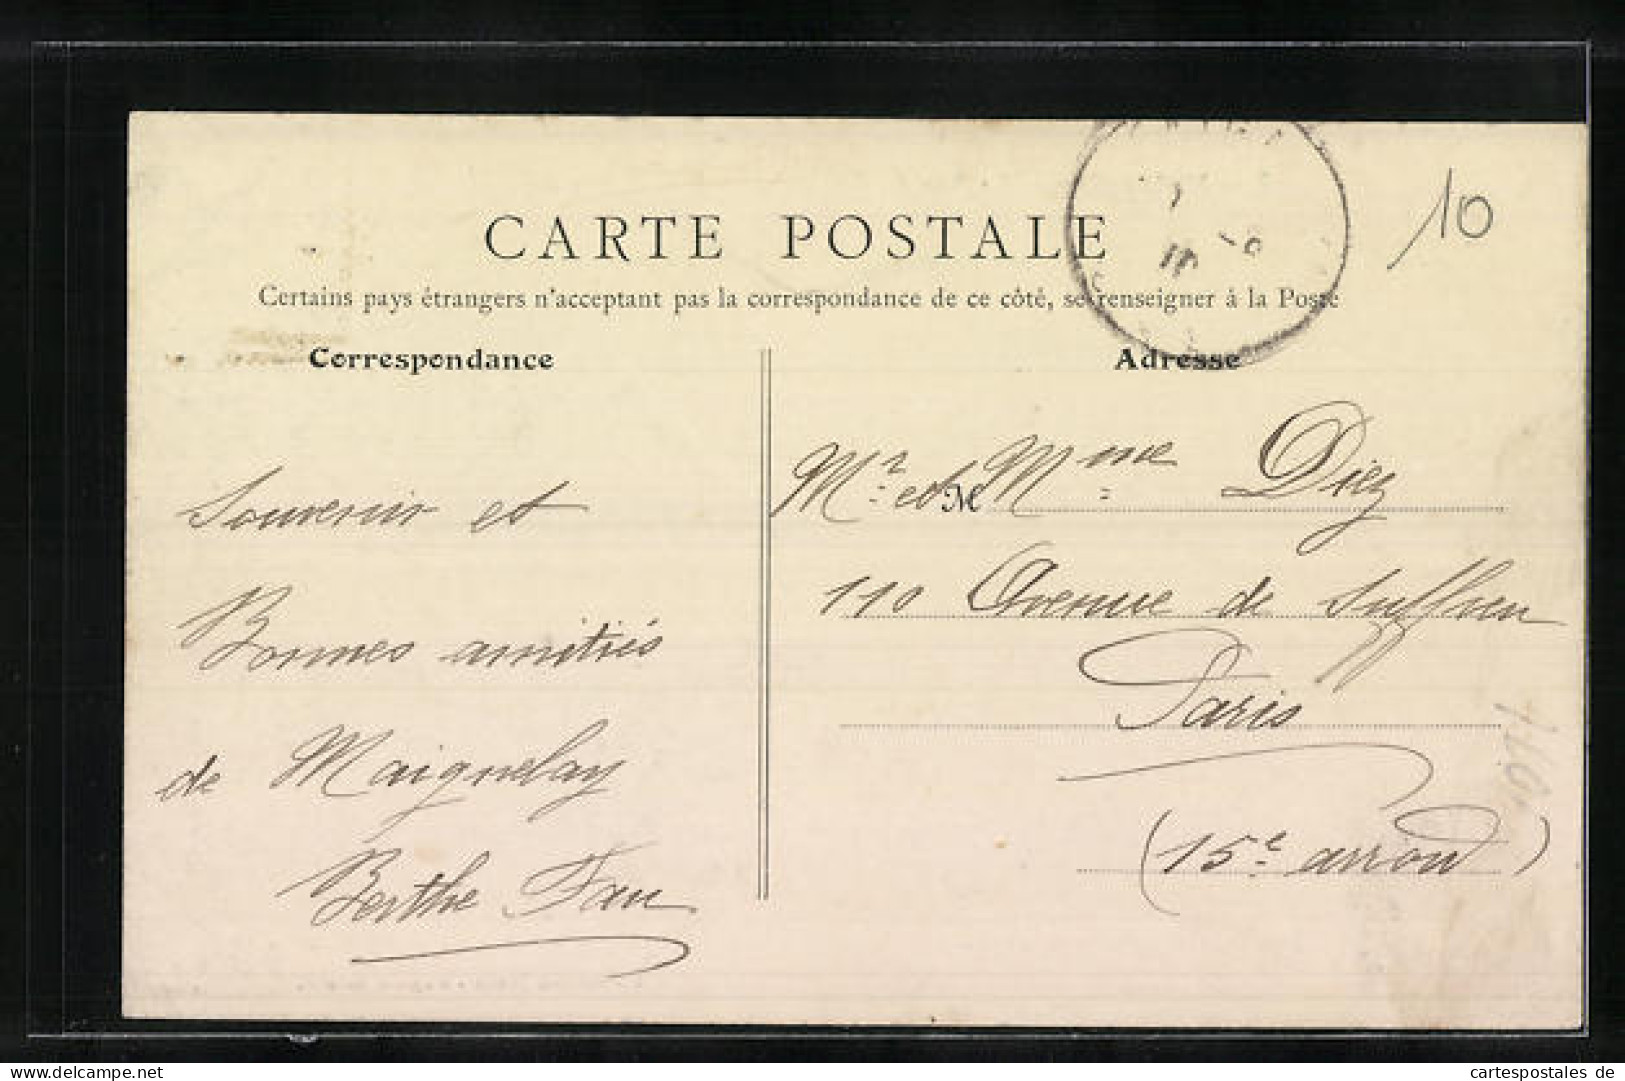 10
CARTE POSTALE
Certains pays étrangers n'acceptant pas la correspondance de ce côté, se renseigner à la Poste
Correspondance
Souvenir et
Bonnes amitiés
de Maignelay
Berthe Fau
Adresse
Mr et M Mme Diez
110 Avenue de Suffren
Paris
(15e arrond)
www.delcampe.net
cartespostales de